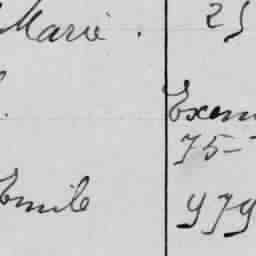 Marie. 25
Exem
75-
Emile 979